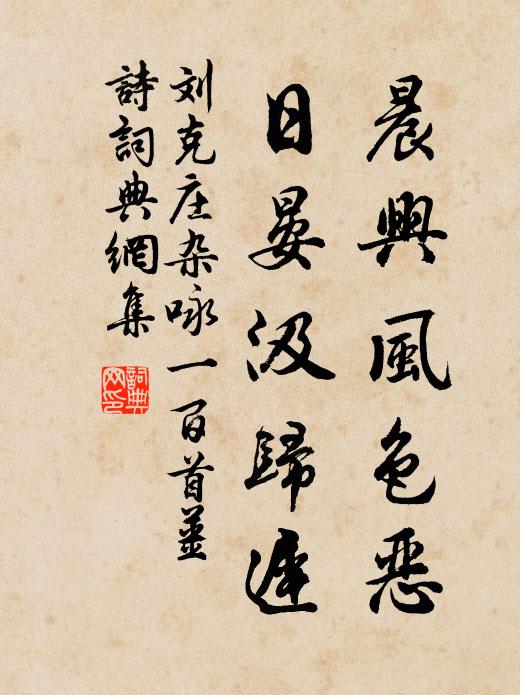 晨興風色惡
日晏汲歸遲
刘克庄杂咏一百首姜
詩詞典網集
詞典網印